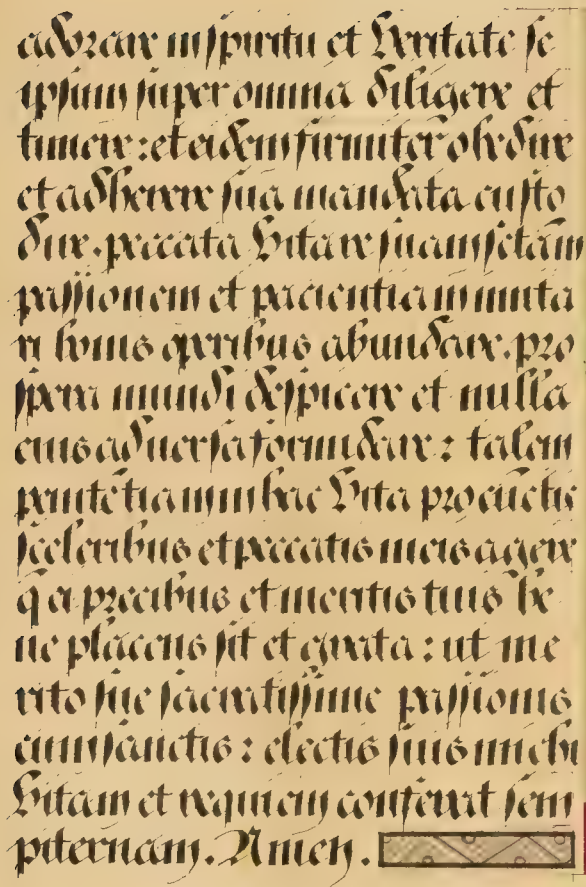 adorare in spiritu et veritate se
ipsum super omnia diligere et
timere: et eidem firmiter obedire
et adherere sua mandata custo
dire. peccata vitare suam sctam
passionem et pacientiam imita
ri bonis operibus abundare. pro
spera mundi despicere et nulla
eius aduersa formidare: talem
penitētiam in hac vita pro cūctis
sceleribus et peccatis meis agere
q̄ ei precibus et meritis tuis be
ne placens sit et grata: ut me
rito sue sacratissime passionis
cum sanctis: electis suis michi
vitam et requiem conferat sem
piternam. Amen.